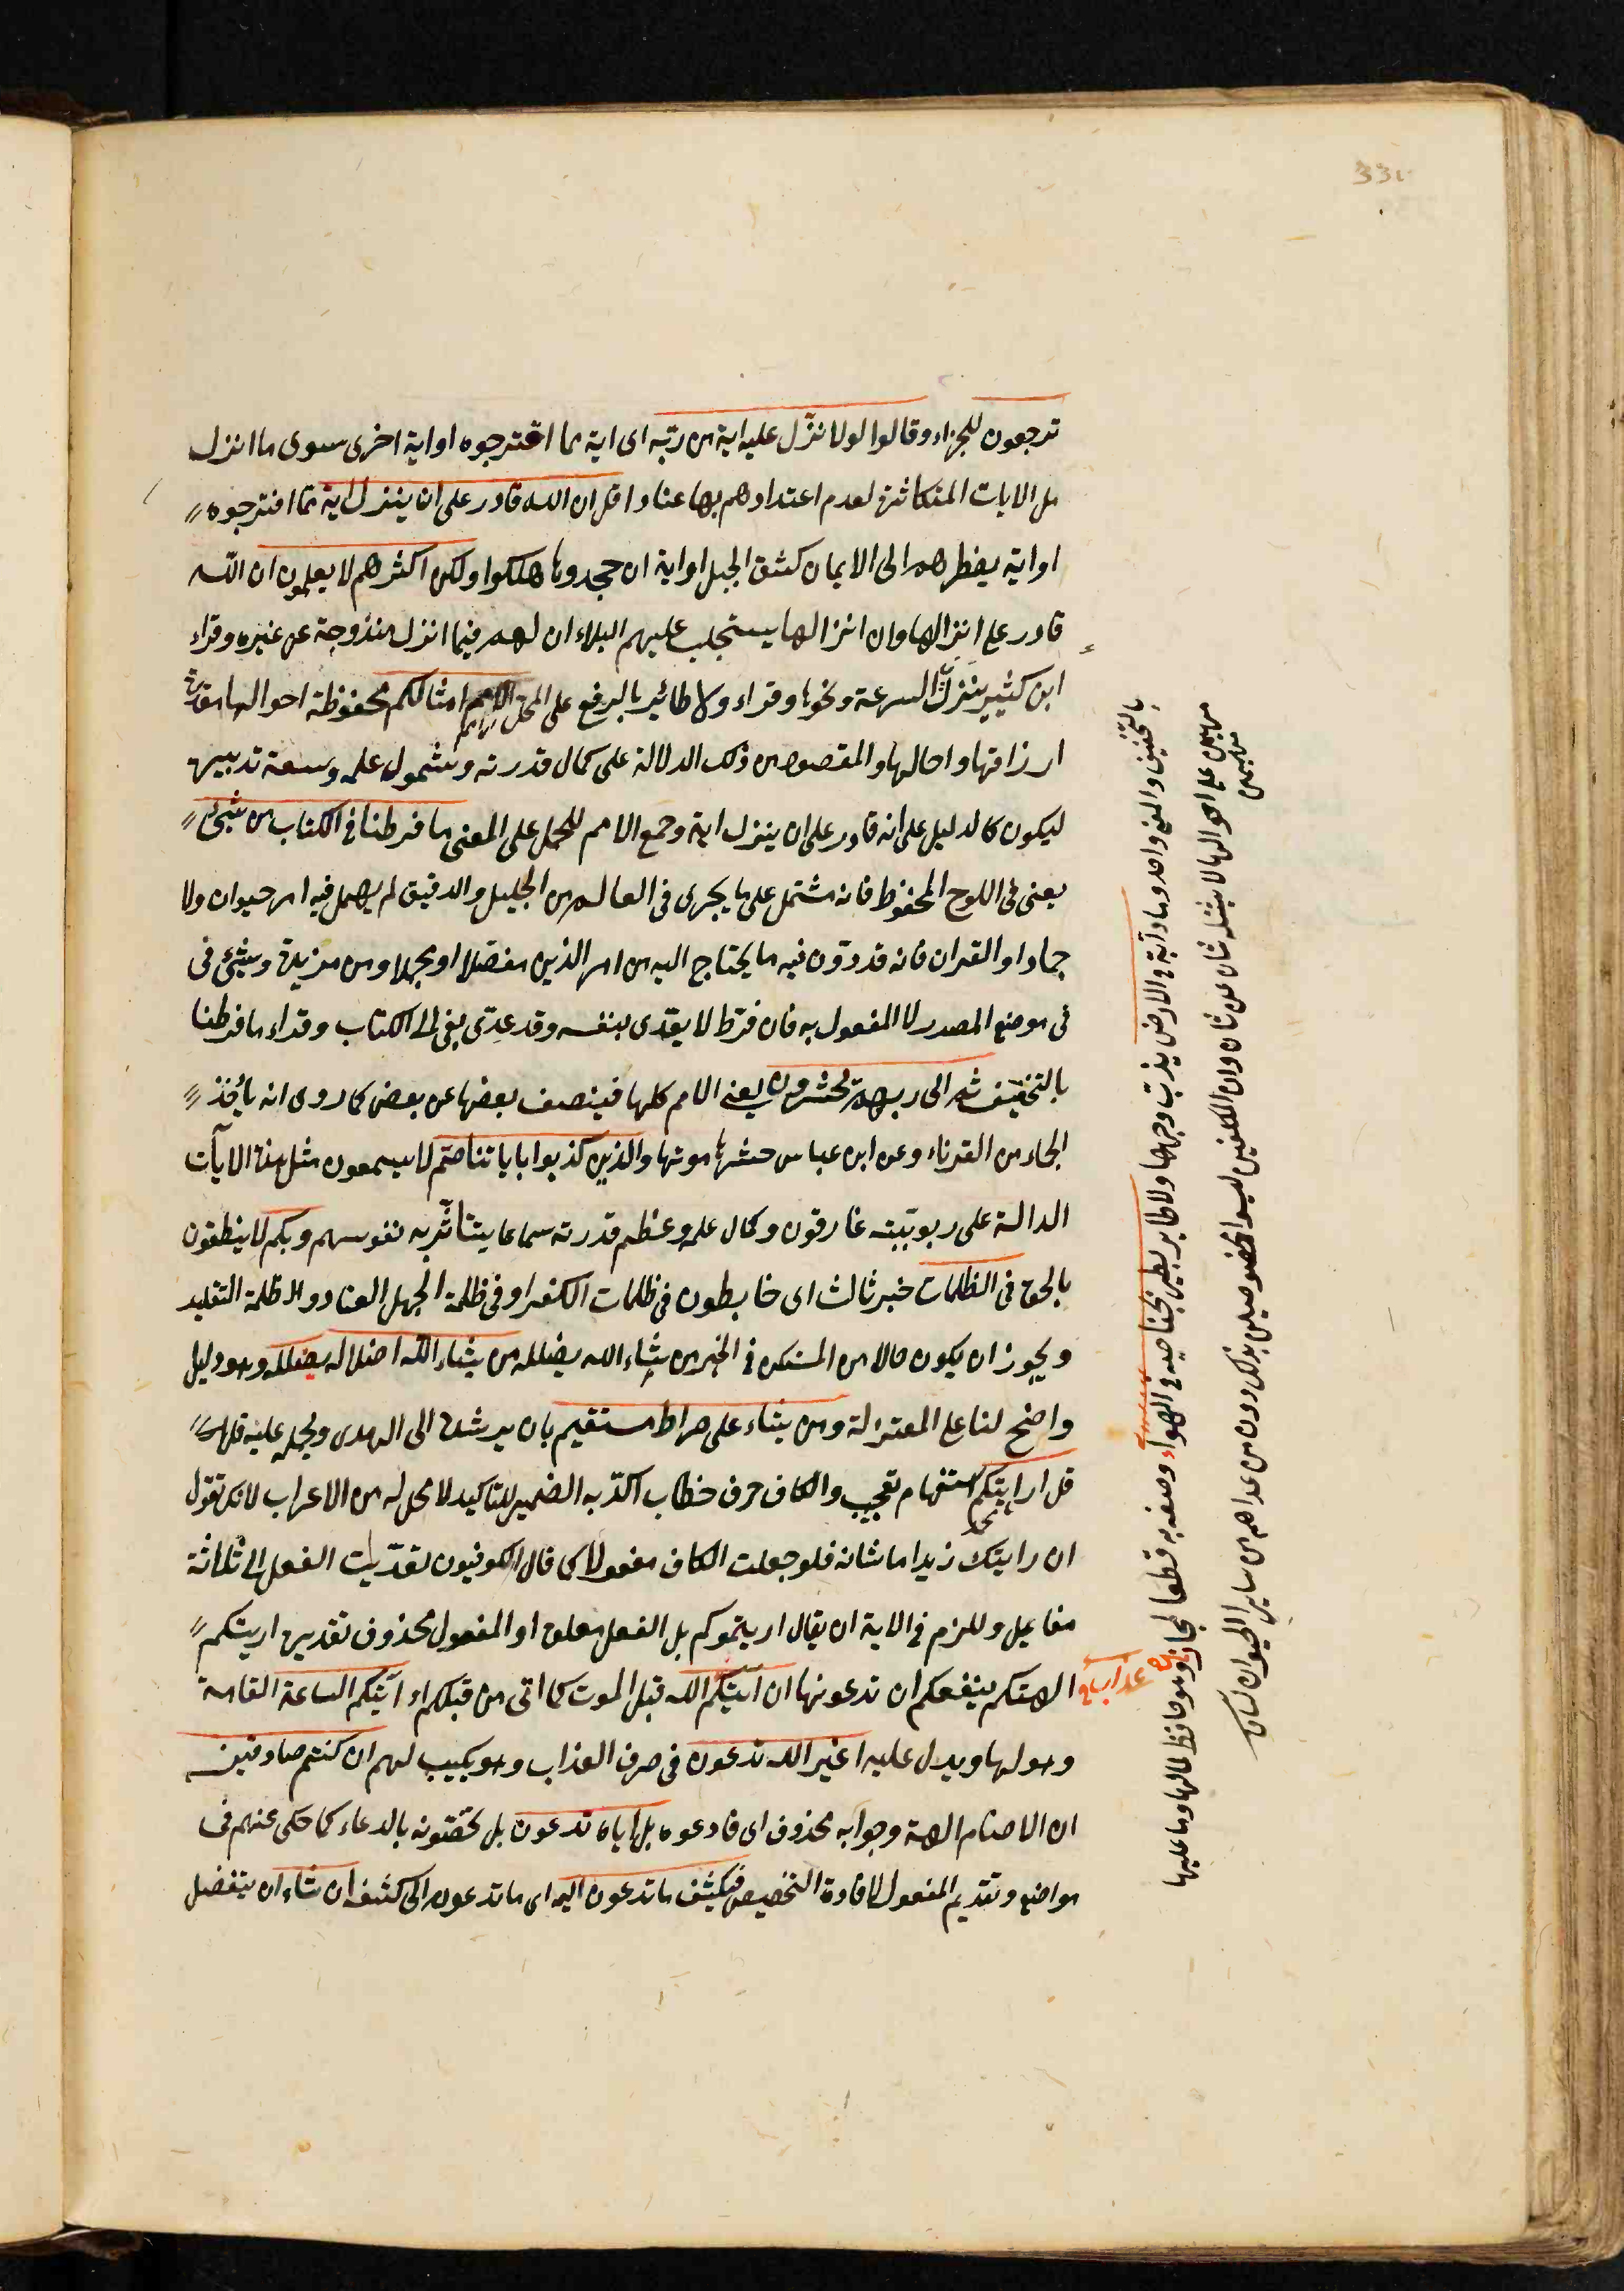 ترجعون للجزاء وقالوا لولا نزّل عليه اية من ربّه اى اية مما اقترحوه او اية اخرى سوى ما انزل
من الايات المتكاثرة لعدم اعتدادهم بها عنادا قل ان الله قادر على ان ينزل اية مما اقترحوه
او اية يضطرهم الى الايمان كشق الجبل او اية ان جحدوها هلكوا ولكن اكثرهم لا يعلمون ان الله
قادر على انزالها وان انزالها يستجلب عليهم البلاء ان لهم فيما انزل مندوحة عن غيره وقراء
ابن كثير ينزل السرعة ونحوها وقراء ولا طائر بالرفع على المحل الا امم امثالكم محفوظة احوالها مقدرة
ارزاقها واجالها والمقصود من ذلك الدلالة على كمال قدرته وشمول علمه وسعة تدبيره
ليكون كالدليل على انه قادر على ان ينزل اية وجمع الامم للحمل على المعنى ما فرطنا فى الكتاب من شئ
يعنى فى اللوح المحفوظ فانه مشتمل على ما يجرى فى العالم من الجليل والدقيق لم يهمل فيه امر حيوان ولا
جماد او القران فانه قد دوّن فيه ما يحتاج اليه من امر الدين مفصّلا او مجملا ومن مزيدة وشئ فى
فى موضع المصدر لا المفعول به فان فرّط لا يعدّى بنفسه وقد عدّى بفى الى الكتاب وقراء ما فرطنا
بالتخفيف ثم الى ربهم يحشرون يعنى الامم كلها فينصف بعضها عن بعض كما روى انه يأخذ
الجماء من القرناء وعن ابن عباس حشرها موتها والذين كذبوا باياتنا صّم لا يسمعون مثل هذه الآيات
الدالة على ربوبيّته وكمال علمه وعظم قدرته سماعا يتأثّر به نفوسهم وبكم لا ينطقون
بالحق فى الظلمات خبر ثالث اى خابطون فى ظلمات الكفر او فى ظلمة الجهل العناد وظلمة التقليد
ويجوز ان يكون حالا من المستكن فى الخبر من يشاء الله يضلله من يشاء الله اضلاله يضلله وهو دليل
واضح لنا على المعتزلة ومن يشاء على صراط مستقيم بان يرشده الى الهدى ويحمله عليه
قل ارايتكم استفهام تعجيب والكاف حرف خطاب اكدّ به الضمير للتاكيد لا محل له من الاعراب لانك تقول
ان رايتك زيدا ما شانه فلو جعلت الكاف مفعولا كما قال الكوفيون لعدّيت الفعل الى ثلاثة
مفاعيل وللزم فى الاية ان يقال اريتموكم بل الفعل معلق او المفعول محذوف تقديره اريتكم
الهتكم ينفعكم ان تدعونها ان اتيكم عذاب الله قبل الموت كما اتى من قبلكم او اتيكم الساعة القامة
وهولها ويدل عليه اغير الله تدعون فى صرف العذاب وهو بكيب لهم ان كنتم صادقين
ان الاصنام الهة وجوابه محذوف اى فادعوه بل اياه تدعون بل تخصّونه بالدعاء كما حكى عنهم فى
مواضع وتقديم المفعول لافادة التخصيص فيكشف ما تدعون اليه اى ما تدعونه الى كشفه ان شاء ان يتفضل
بالتخفيف والمعنى واحد وما من دابة فى الارض يدب وجهها ولا طاير يطير بجناحيه فى الهواء وصفه به قطعا لمجاز
وهو حافظ لما لها وما عليها
مهيمن على احوالها لا يشغله شان عن شان وان المكلفين ليسوا بمخصوصين بذلك دون من عداهم من ساير الحيوان